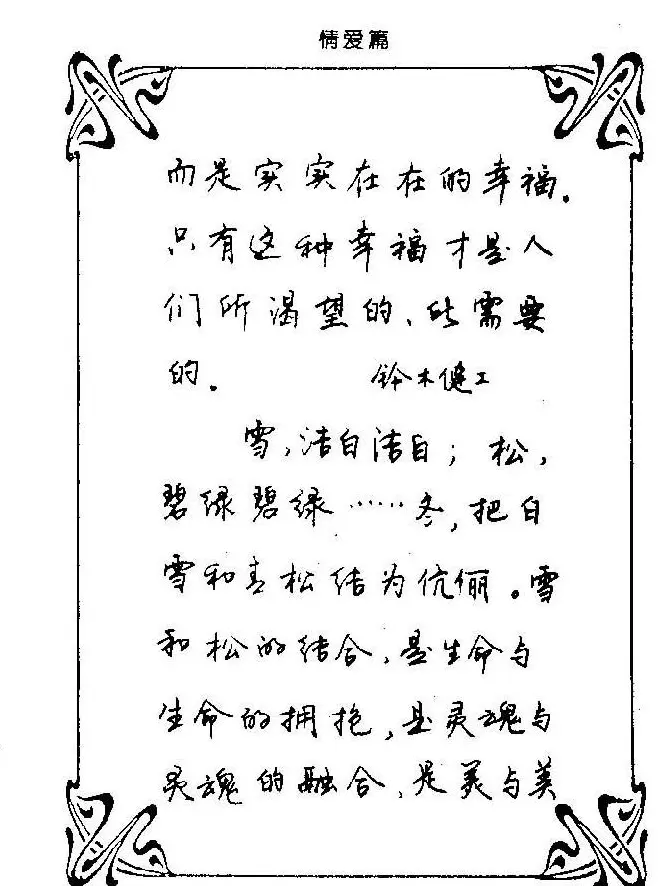 情爱篇
而是实实在在的幸福.
只有这种幸福才是人
们所渴望的、所需要
的.
铃木健二
雪,洁白洁白;松,
碧绿碧绿……冬,把白
雪和青松结为伉俪。雪
和松的结合,是生命与
生命的拥抱,是灵魂与
灵魂的融合,是美与美